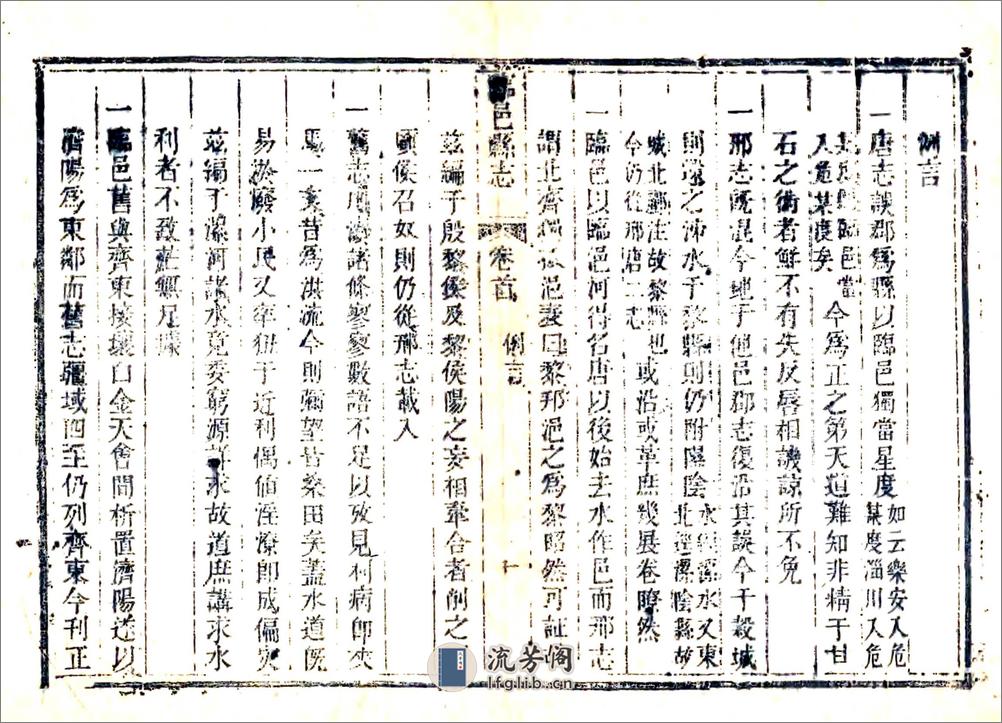 例言
一唐志誤郡為縣以臨邑獨當星度如云樂安入危某度淄川入危
某度則臨邑當入危某度矣今為正之第天道難知非精于甘
石之術者鮮不有失反唇相譏諒所不免
一邢志既混今地于他邑鄒志復沿其誤今于穀城
則還之泲水于黎縣則仍附隰陰水與漯水又東北逕漯陰縣故
城北酈注故黎縣也今仍從邢唐二志或沿或革庶幾展卷瞭然
一臨邑以臨邑河得名唐以後始去水作邑而邢志
謂北齊浥妻曰黎邢浥之為黎昭然可証
茲編于殷黎侯及黎侯陽之妄相牽合者削之
頭侯召奴則仍從邢志載入
臨邑縣志
卷首
例言
十
一舊志河諸條寥寥數語不足以攷見利病即夾
馬一實昔為洪流今則彌望皆桑田矣蓋水道既
易淤廢小民又牟狃于近利偶值淫潦即成偏災
茲編于漯河諸水竟委窮源詳求故道庶講求水
利者不致茫無凡據
一臨邑舊與齊東接壤自金天會間析置濟陽遂以
濟陽為東鄰而舊志疆域四至仍列齊東今刊正
流芳閣
lfglib.cn